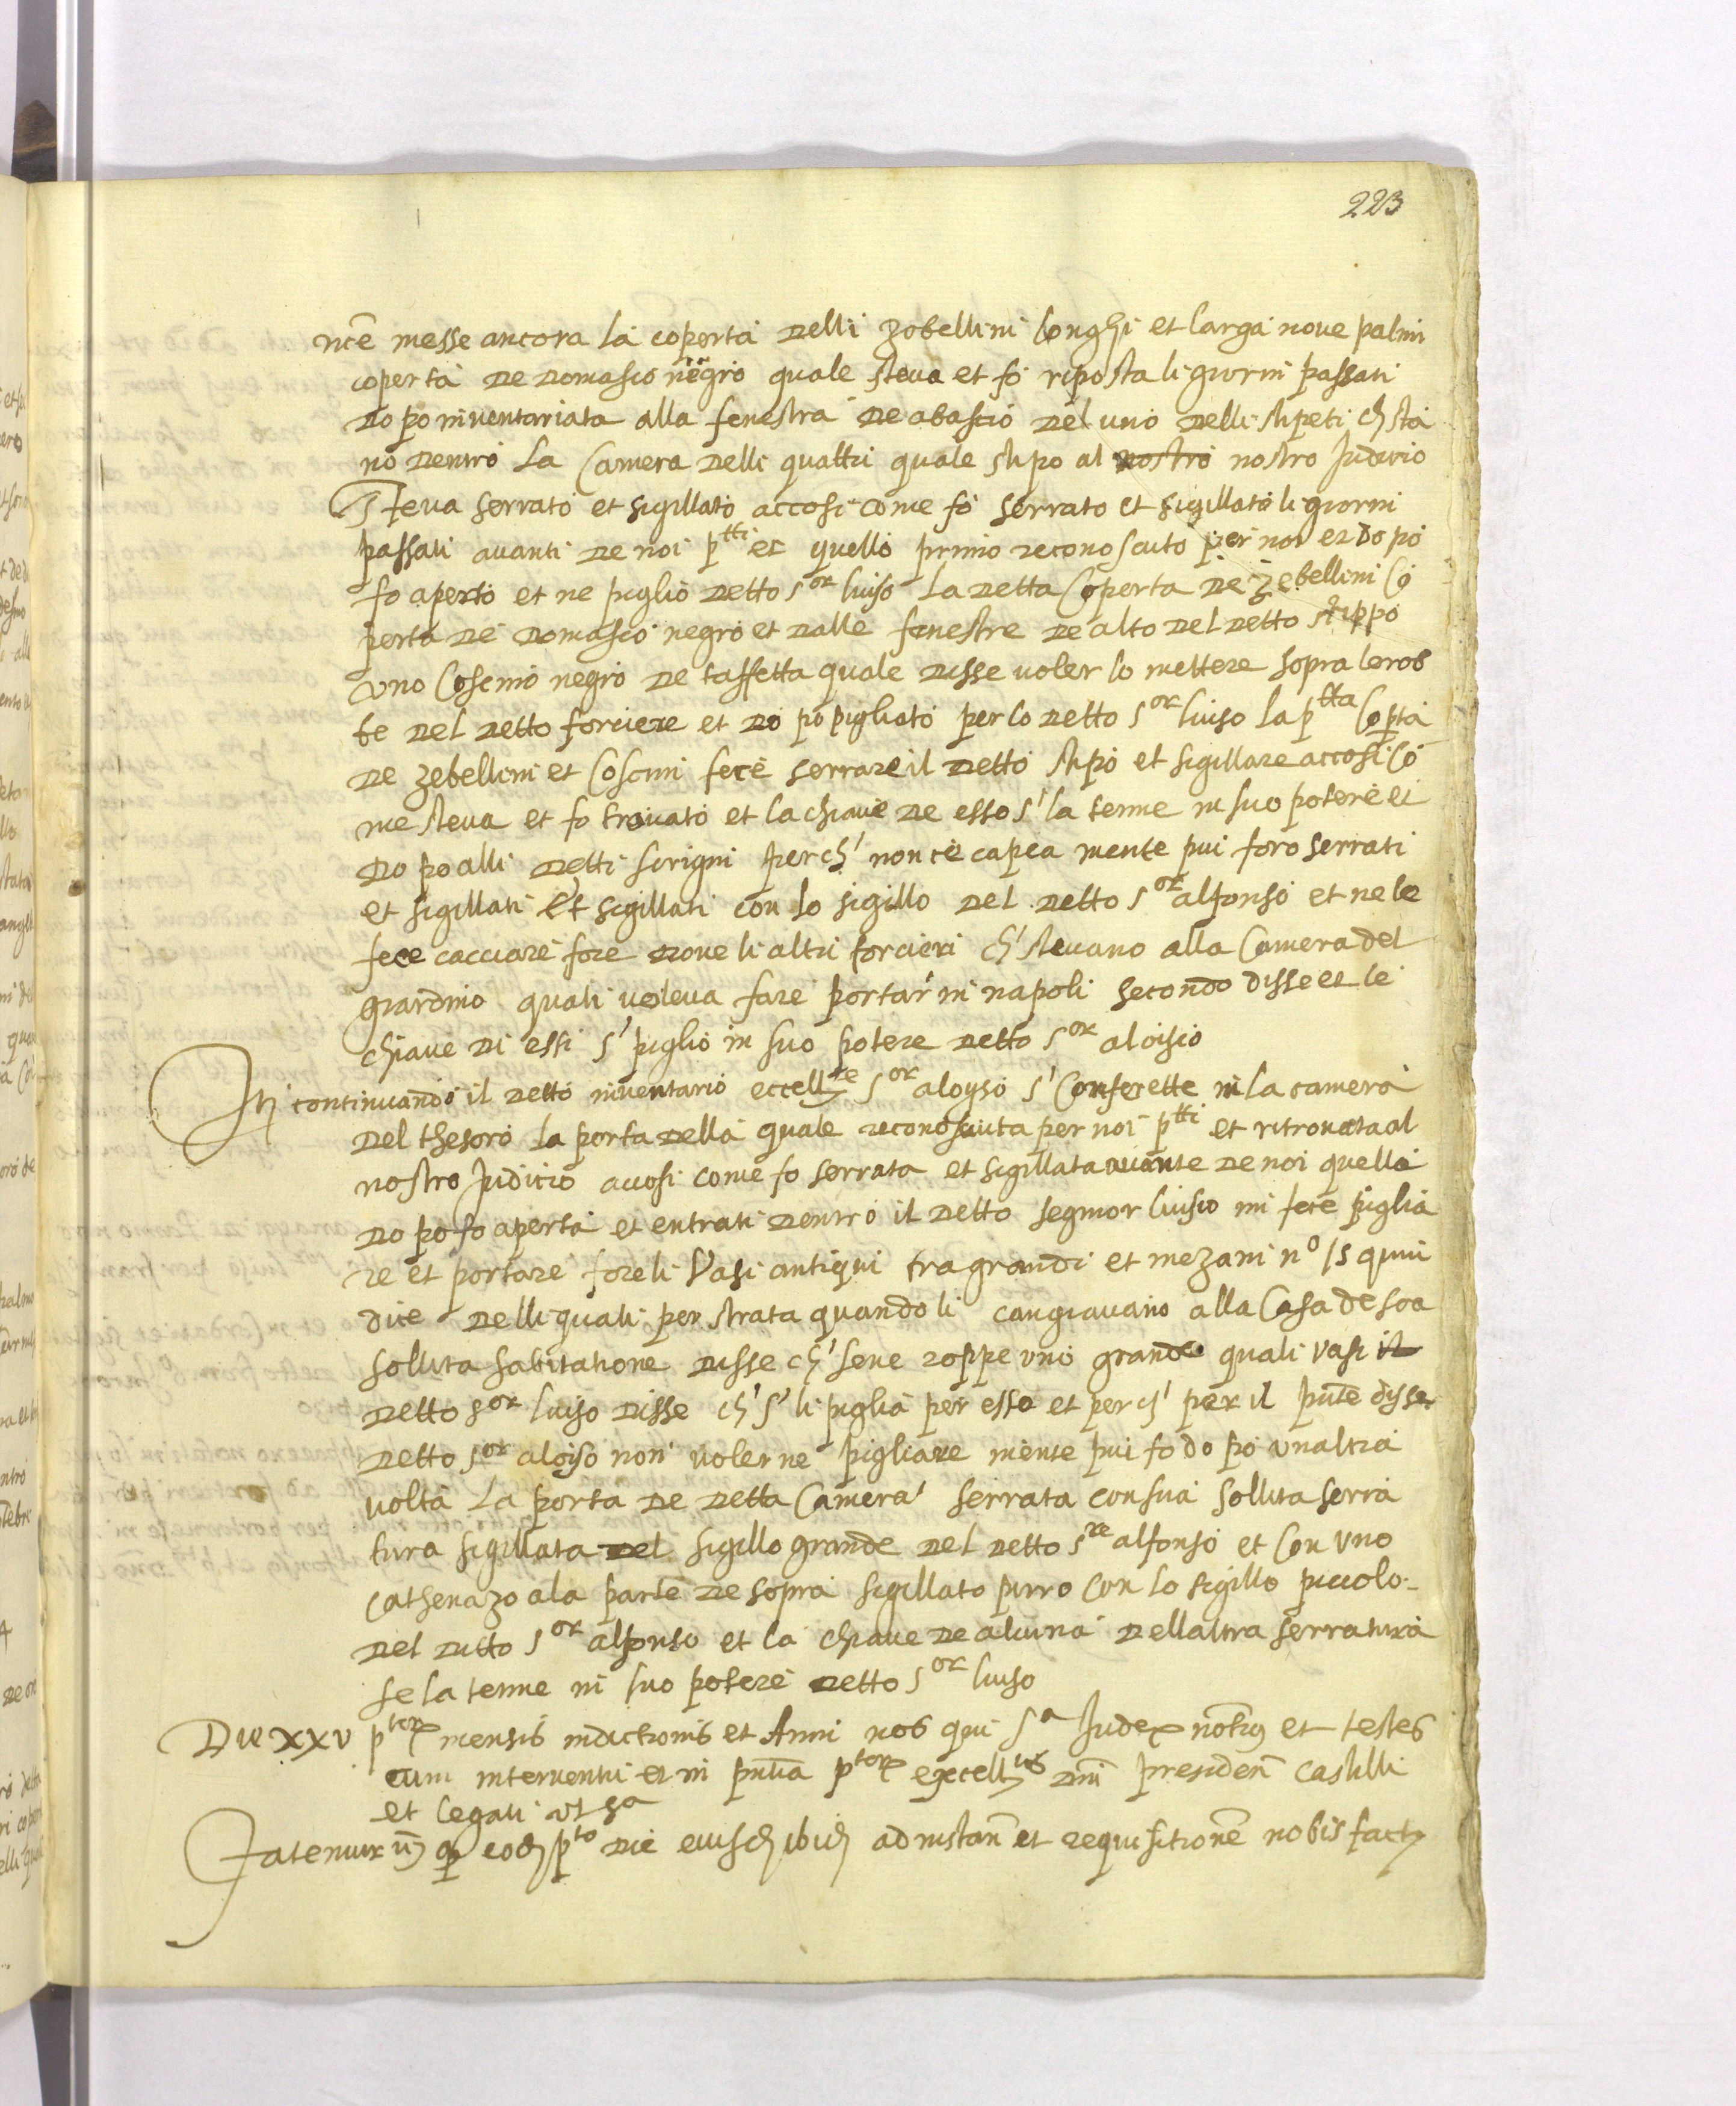 223
nce messe ancora la coperta delli zobellini longhi et larga nove palmi
coperta de domasco negro quale steva et fo riposta li giorni passati
do po inventariata alla fenestra de abascio del uno delli stipeti ch sta
no dentro la Camera delli quattri quale stipo al nostro nostro Judicio
steva serrato et sigillato accosi come fo serrato et sigillato li giorni
passati avanti de noi p^tti et quello primo reconosciuto per noi et do po
fo aperto et ne piglio detto s^or luiso la detta Coperta de zebellini Co
perta de domasco negro et dalle fenestre de alto del detto stippo
uno Coscino negro de taffetta quale disse voler lo mettere sopra le rob
be del detto forciere et do po pigliato per lo detto s^or luiso la p^tta Copta
de zebellini et Coscini fece serrare il detto stipo et sigillare accosi Co
me steva et fo trovato et la chiave de esso s' la tenne in suo potere et
do po alli detti scrigni perch' non ce capea niente piu foro serrati
et sigillati et sigillati con lo sigillo del detto s^or alfonso et ne le
fece cacciare fore dove li altri forcieri ch' stevano alla Camera del
giardino quali voleva fare portar' in napoli secondo disse et le
chiave di essi s' piglio in suo potere detto s^or aloisio
It continuando il detto inventario eccell^te s^or aloyso s' Conferette in la camera
del thesoro la porta della quale reconosciuta per noi p^tti et ritrovata al
nostro Judicio accosi come fo serrata et sigillata avante de noi quella
do po fo aperta et entrati dentro il detto segnior luisio mi fece piglia
re et portare fore li Vasi antiqui tra grandi et mezani n^o 15 quin
dice delli quali per strata quando li cangiavano alla Casa de soa
sollita habitatione disse ch' sene roppe uno grande quali vasi il
detto s^or luiso disse ch' s' li piglia per esso et perch' per il pnte disse
detto s^or aloiso non voler ne pigliare niente piu fo do po unaltra
volta la porta de detta Camera serrata con sua sollita serra
tura sigillata del sigillo grande del detto s^re alfonso et Con uno
Cathenazo a la parte de sopra sigillato purro Con lo sigillo piccolo
del ditto s^or alfonso et la chiave de alcuna dellaltra serratura
se la tenne in suo potere detto s^or luiso
Die xxv p^ter mensis indictionis et Anni nos qui s^a Judex notus et testes
cum interventu et in pntia p^tor excell^tis dni presiden castelli
et legati ut s^a
Fatemur q eod p^to die eiusd ibid ad instan et requisitione nobis fact